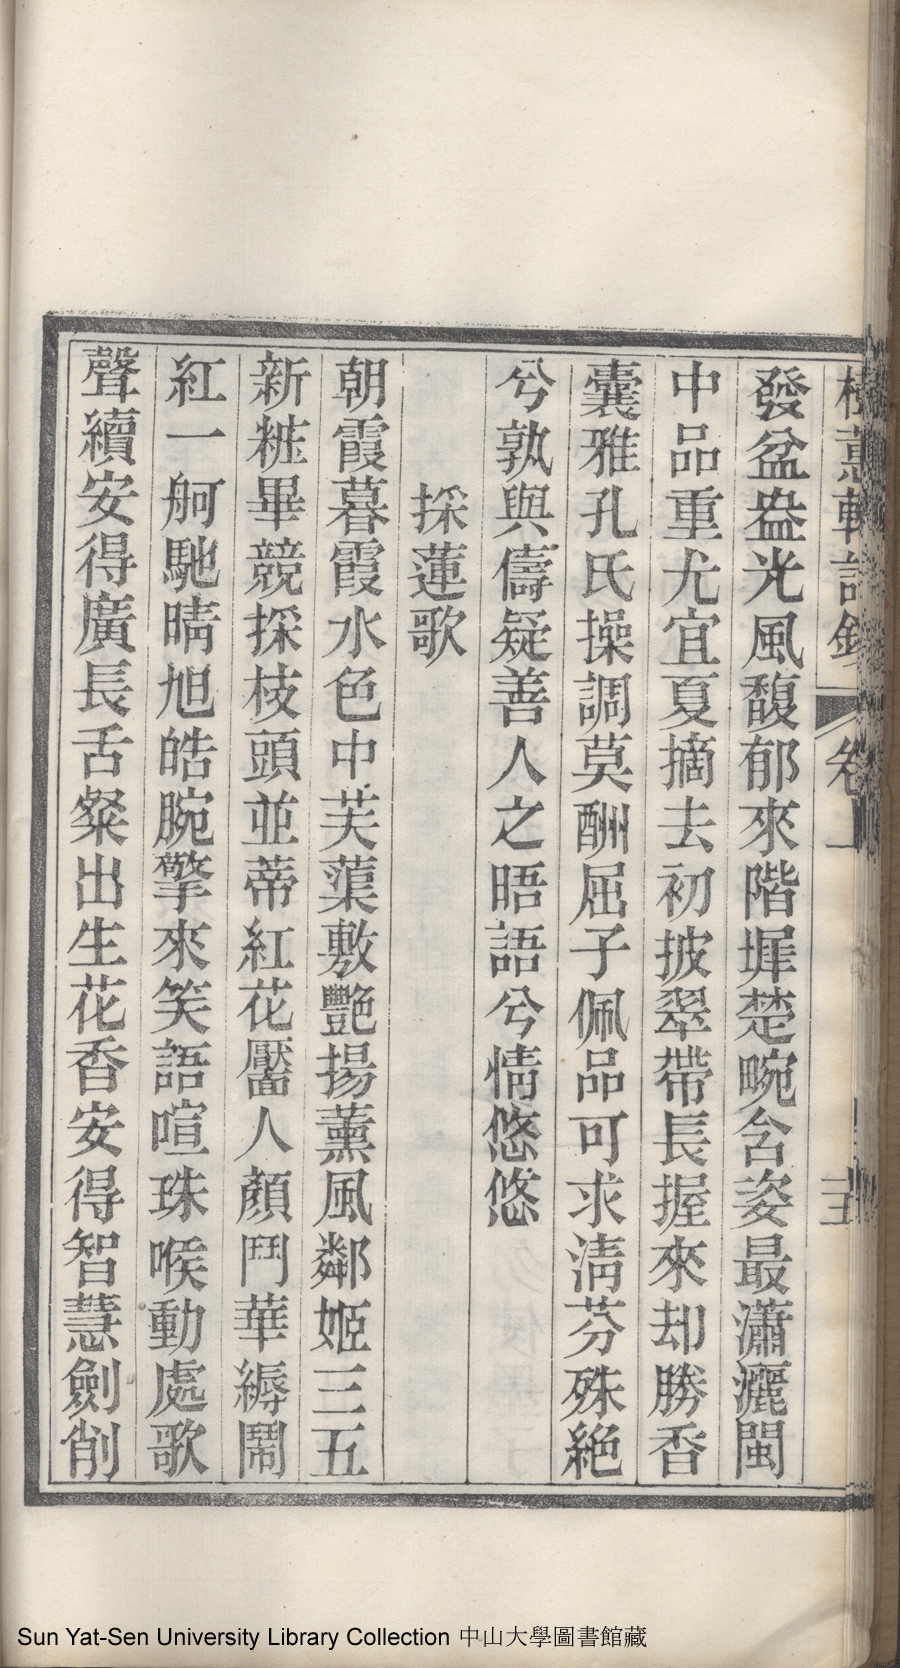 發盆盎光風馥郁來階墀楚畹含姿最瀟灑閩
中品重尤宜夏摘去初披翠帶長握來却勝香
囊雅孔氏操調莫酬屈子佩品可求淸芬殊絕
兮孰與儔疑善人之晤語兮情悠悠
採蓮歌
朝霞暮霞水色中芙蕖敷艷揚薰風鄰姬三五
新粧畢競採枝頭並蒂紅花靨人顏鬥華縟鬧
紅一舸馳晴旭皓腕擎來笑語喧珠喉動處歌
聲續安得廣長舌粲出生花香安得智慧劍削
Sun Yat-Sen University Library Collection 中山大學圖書館藏